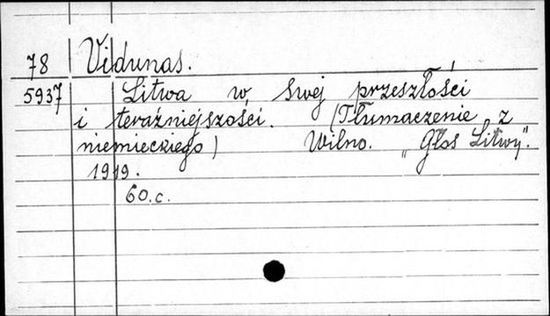 78 Vidunas.
5937 Litwa w swej przeszłości
i teraźniejszości. (Tłumaczenie z
niemieckiego) Wilno. „Głos Litwy".
1919.
60.c.